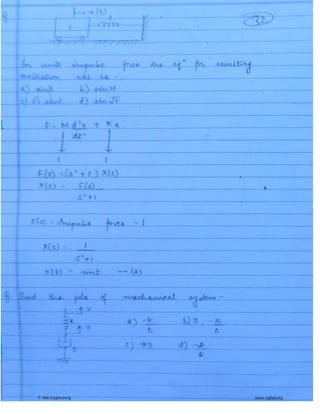 Q
x(t)
1
1
32
In unit impulse force the eqⁿ for resulting
oscillation will be -
a) sint b) sin2t
c) √2 sint d) sin√t
F = M d²x + Kx
dt²
1 1
F(s) = (s² + 1) X(s)
X(s) = F(s)
s²+1
F(s) = Impulse force = 1
X(s) = 1
s²+1
x(t) = sint → (a)
Q Find the pole of mechanical system -
X
K
Y
D
a) -K/D b) 0, -K/D
c) -KD d) -D/K